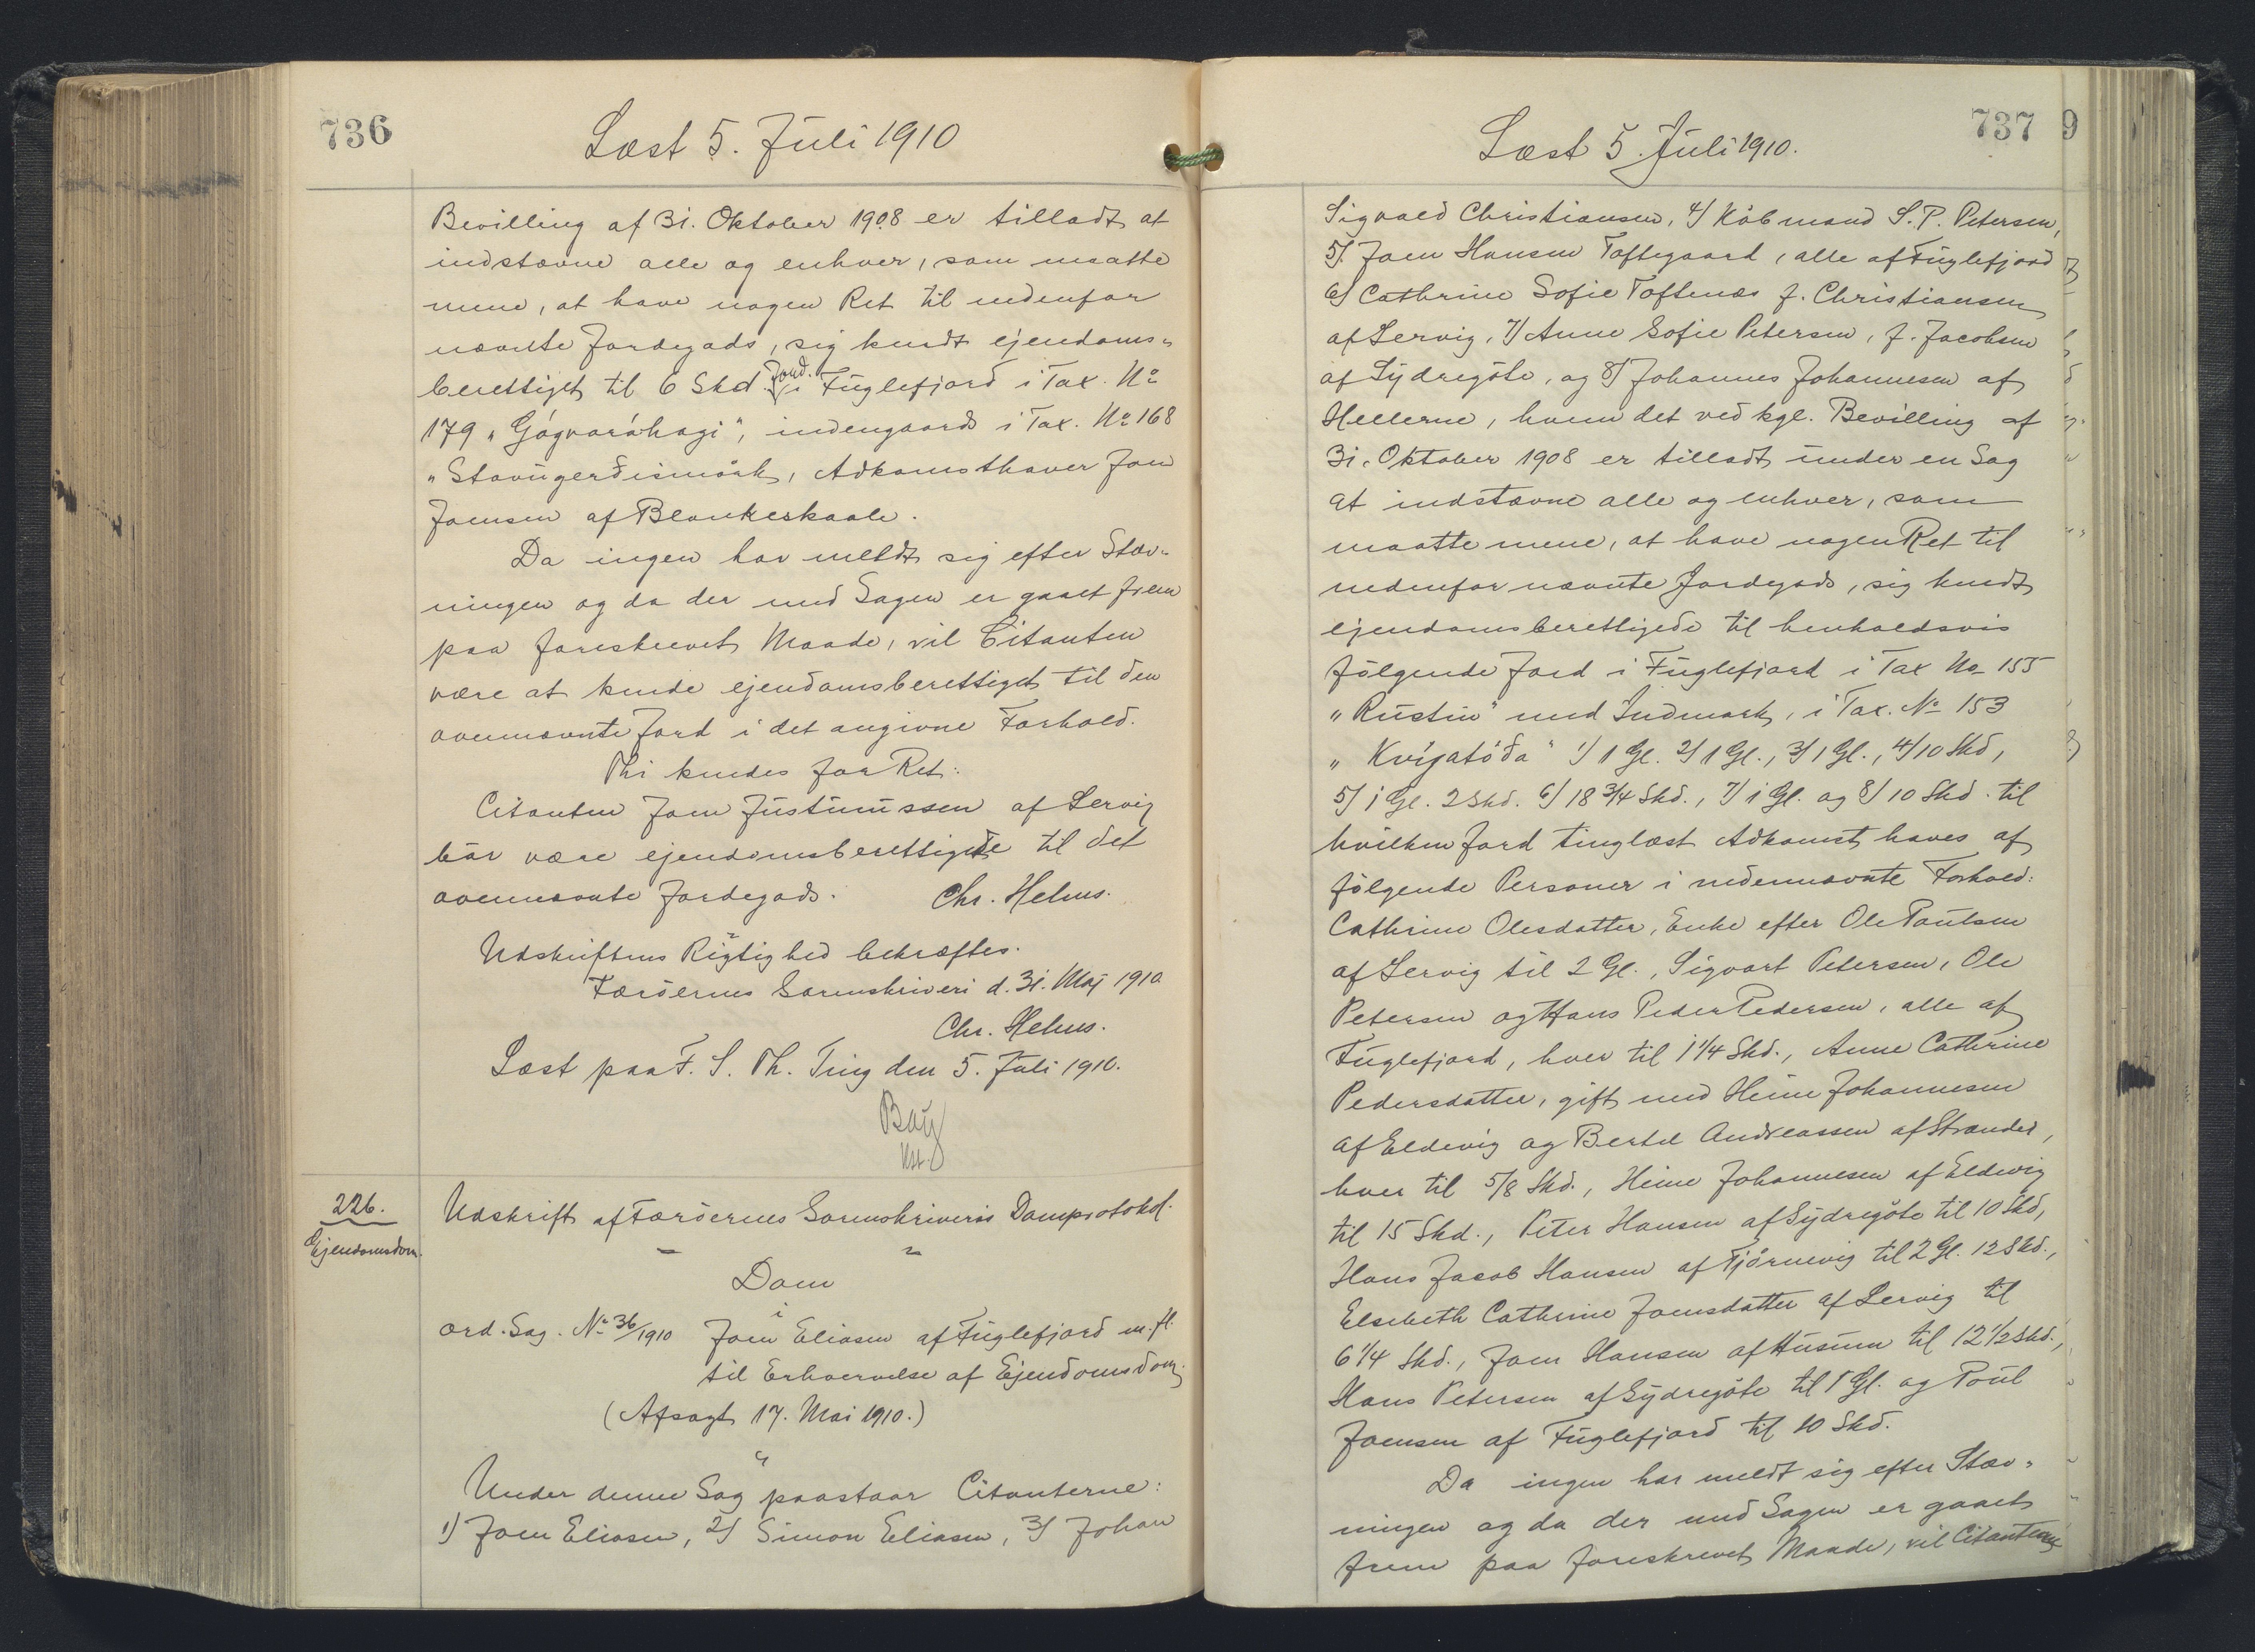 736
Læst 5. Juli 1910
Bevilling af 31. Oktober 1908 er tilladt at
indstævne alle og enhver, som maatte
mene, at have nogen Ret til nedenfor
nævnte Jordegods, sig kendt ejendoms-
berettiget til 6 Skd. Jord. i Fuglefjord i Tax. No
179 "Gágvaráhagi", indengaards i Tax. No 168
"Stovugerðismørk, Adkomsthaver Joen
Joensen af Blankeskaale.
Da ingen har meldt sig efter Stæv-
ningen og da der med Sagen er gaaet frem
paa foreskrevet Maade, vil Citanten
være at kende ejendomsberettiget til den
ovennævnte Jord i det angivne Forhold.
Thi kendes for Ret:
Citanten Joen Justinussen af Lervig
bør være ejendomsberettigede til det
ovennævnte Jordegods. Chr. Helms.
Udskriftens Rigtighed bekræftes.
Færøernes Sorenskriveri d. 31. Maj 1910
Chr. Helms.
Læst paa F. S. Th. Ting den 5. Juli 1910.
Bay
Kst.
226.
Ejendomsdom.
Udskrift af Færøernes Sorenskriveris Domprotokol.
Dom
i
ord. Sag. No 36/1910 Joen Eliasen af Fuglefjord m. fl.
til Erhvervelse af Ejendomsdom.
(Afsagt 17. Mai 1910.)
Under denne Sag paastaar Citanterne:
1) Joen Eliasen, 2) Simon Eliasen, 3) Johan
737 9
Læst 5. Juli 1910.
Sigvald Christiansen, 4) Købmand S. P. Petersen,
5). Joen Hansen Toftegaard, alle af Fuglefjord
6) Cathrine Sofie Toftenæs f. Christiansen
af Lervig, 7) Anne Sofie Petersen, f. Jacobsen
af Sydregøte, og 8) Johannes Johannesen af
Hellerne, hvem det ved kgl. Bevilling af
31. Oktober 1908 er tilladt under en Sag
at indstævne alle og enhver, som
maatte mene, at have nogen Ret til
nedenfor nævnte Jordegods, sig kendt
ejendomsberettigede til henholdsvis
følgende Jord i Fuglefjord i Tax No 155
"Rustin" med Indmark, i Tax. No 153
"Kvígatøða" 1) 1 Gl. 2) 1 Gl., 3) 1 Gl., 4) 10 Skd,
5) 1 Gl. 2 Skd. 6) 18 3/4 Skd., 7) 1 Gl. og 8) 10 Skd. til
hvilken Jord tinglæst Adkomst haves af
følgende Personer i nedennævnte Forhold:
Cathrine Olesdatter, Enke efter Ole Poulsen
af Lervig til 2 Gl., Sigvart Petersen, Ole
Petersen og Hans Peder Pedersen, alle af
Fuglefjord, hver til 1 1/4 Skd., Anne Cathrine
Pedersdatter, gift med Heine Johannesen
af Eldevig og Bertel Andreassen af Strænder,
hver til 5/8 Skd., Heine Johannesen af Eldevig
til 15 Skd., Peter Hansen af Sydregøte til 10 Skd,
Hans Jacob Hansen af Tjørnevig til 2 Gl. 12 Skd.,
Elsebeth Cathrine Joensdatter af Lervig til
6 1/4 Skd., Joen Hansen af Husum til 12 1/2 Skd.,
Hans Petersen af Sydregøte til 1 Gl. og Poul
Joensen af Fuglefjord til 10 Skd.
Da ingen har meldt sig efter Stæv-
ningen og da der med Sagen er gaaet
frem paa foreskrevet Maade, vil Citanterne